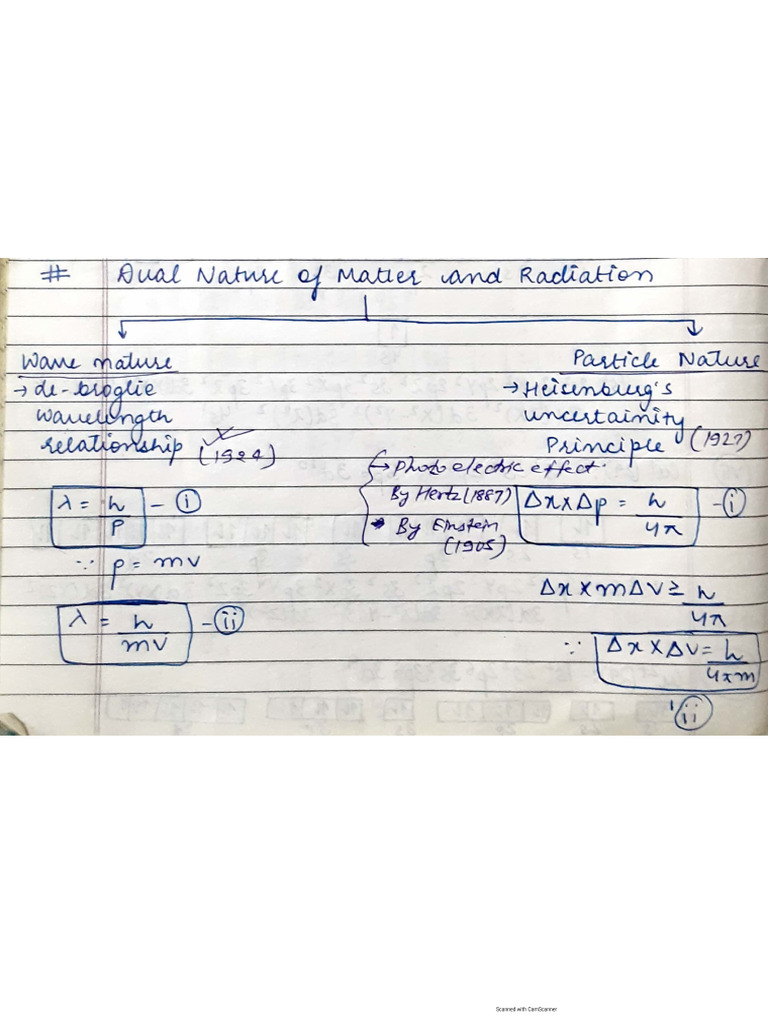 # Dual Nature of Matter and Radiation
Wave nature
→ de-broglie
wavelength
relationship (1924)
λ = h/P - (i)
∵ p = mv
λ = h/mv - (ii)
Particle Nature
→ Heisenburg's
uncertainity
Principle (1927)
→ Photo electric effect.
By Hertz (1887)
By Einstein
(1905)
Δx×Δp = h/4π - (i)
Δx×mΔv ≥ h/4π
∵ Δx×Δv = h/4πm
(ii)
Scanned with CamScanner